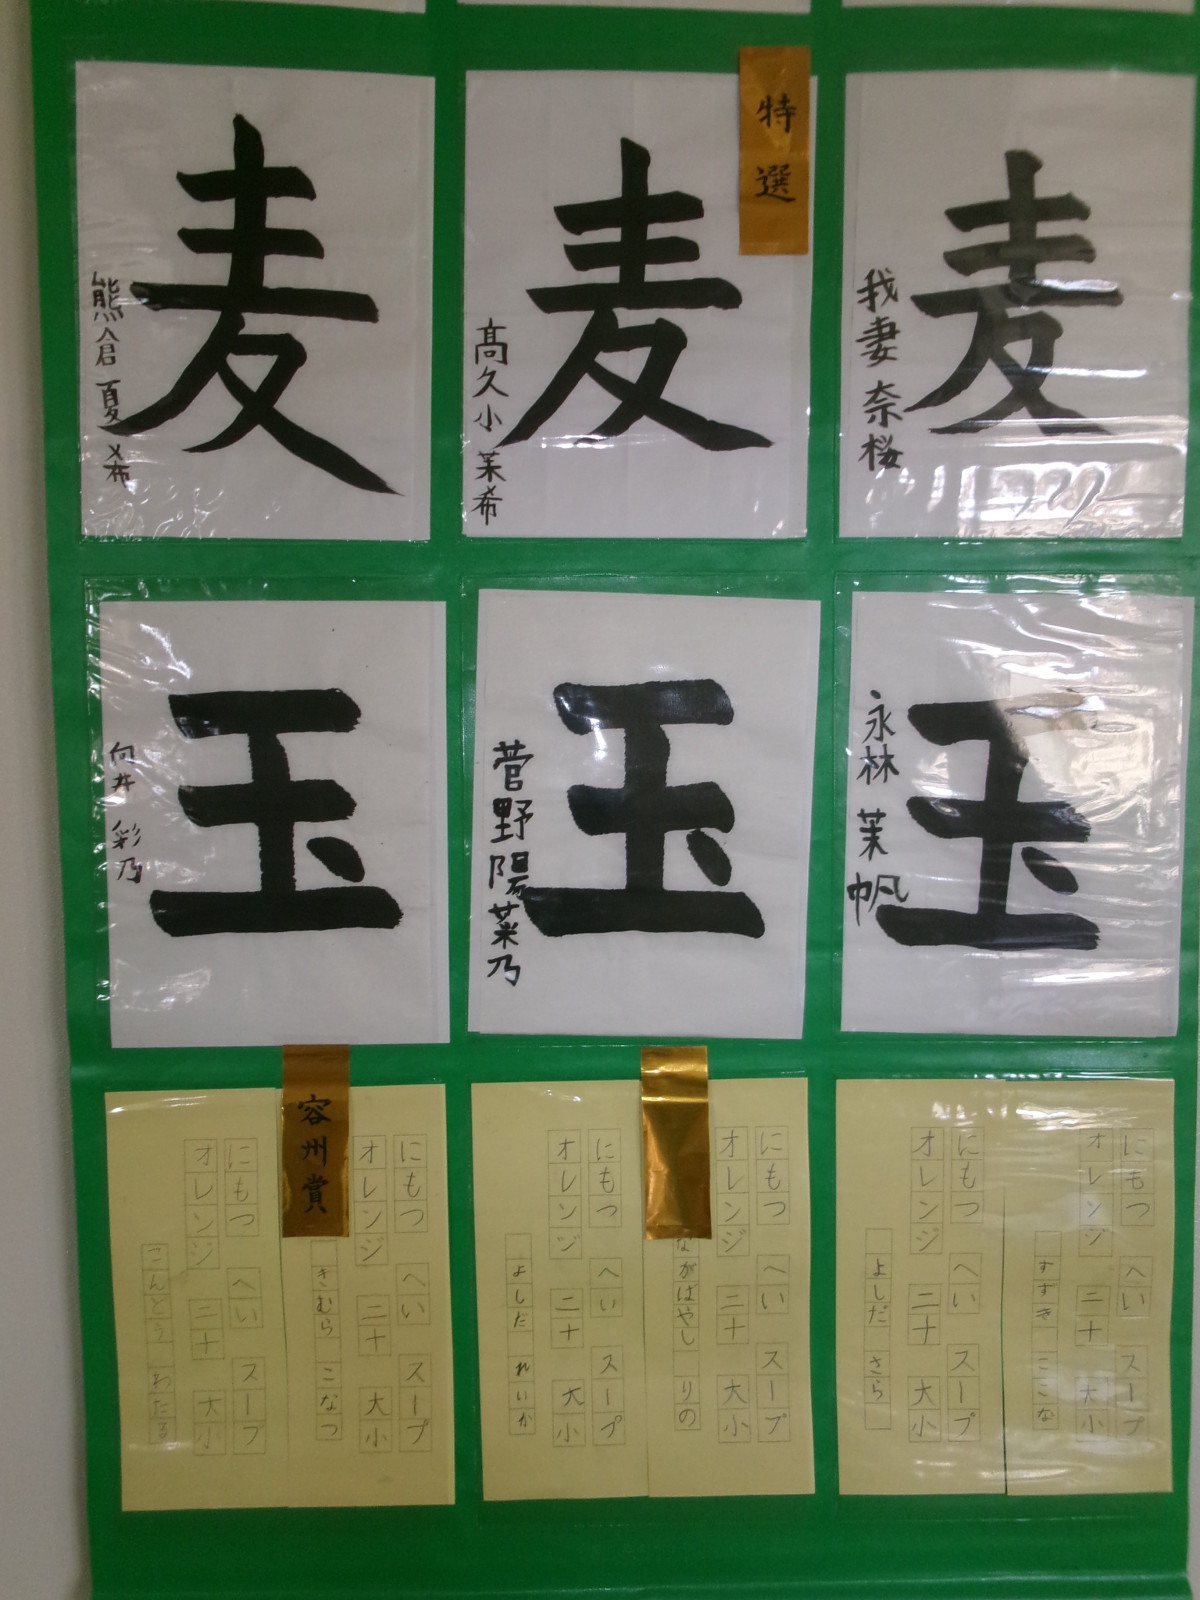 麦
熊倉夏希
特選
麦
高久小茉希
麦
我妻奈桜
玉
向井 彩乃
玉
菅野陽菜乃
玉
永林 茉帆
容州賞
にもつ へい スープ
オレンジ 二十 大小
きむら こなつ
にもつ へい スープ
オレンジ 二十 大小
こんどう わたる
にもつ へい スープ
オレンジ 二十 大小
ながばやし りの
にもつ へい スープ
オレンジ 二十 大小
よした れいか
にもつ へい スープ
オレンジ 二十 大小
すずき ここな
にもつ へい スープ
オレンジ 二十 大小
よしだ さら